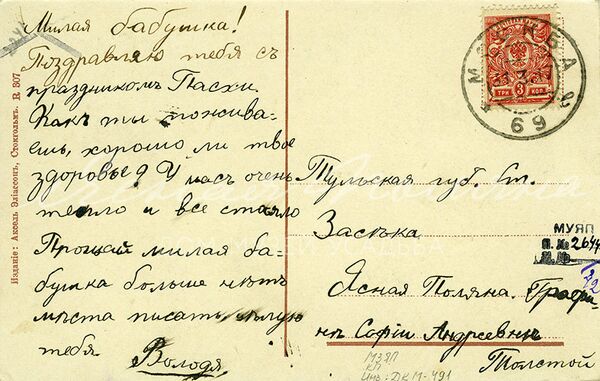 Милая бабушка!
Поздравляю тебя съ
праздникомъ Пасхи.
Какъ ты пожива-
ешь, хорошо ли твое
здоровье? У насъ очень
тепло и все стаяло
Прощай милая ба-
бушка больше нетъ
места писать, целую
тебя. Володя
Изданіе: Аксель Эліассонъ, Стокгольмъ. R 307
МОСКВА
69
ТРИ 3 КОП.
Тульская губ. Ст.
Засѣка
Ясная Поляна. Графи-
нѣ Софіи Андреевнѣ
Толстой
МУЯП
П. №
МЗЯП
КП
Инв: ДКМ-491